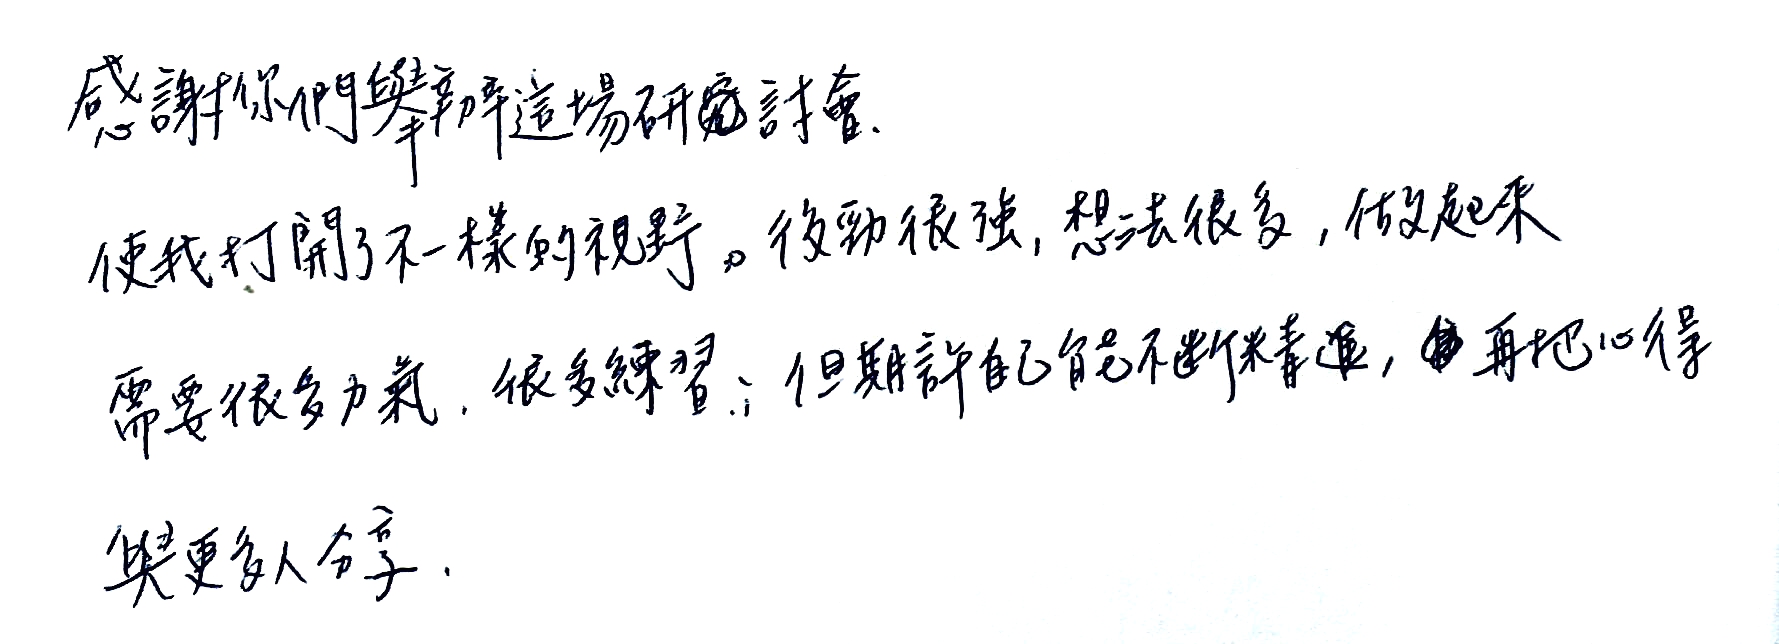 感謝你們舉辦這場研討會.
使我打開了不一樣的視野。後勁很強,想法很多,做起來
需要很多力氣.很多練習;但期許自己能不斷精進,再把心得
與更多人分享.